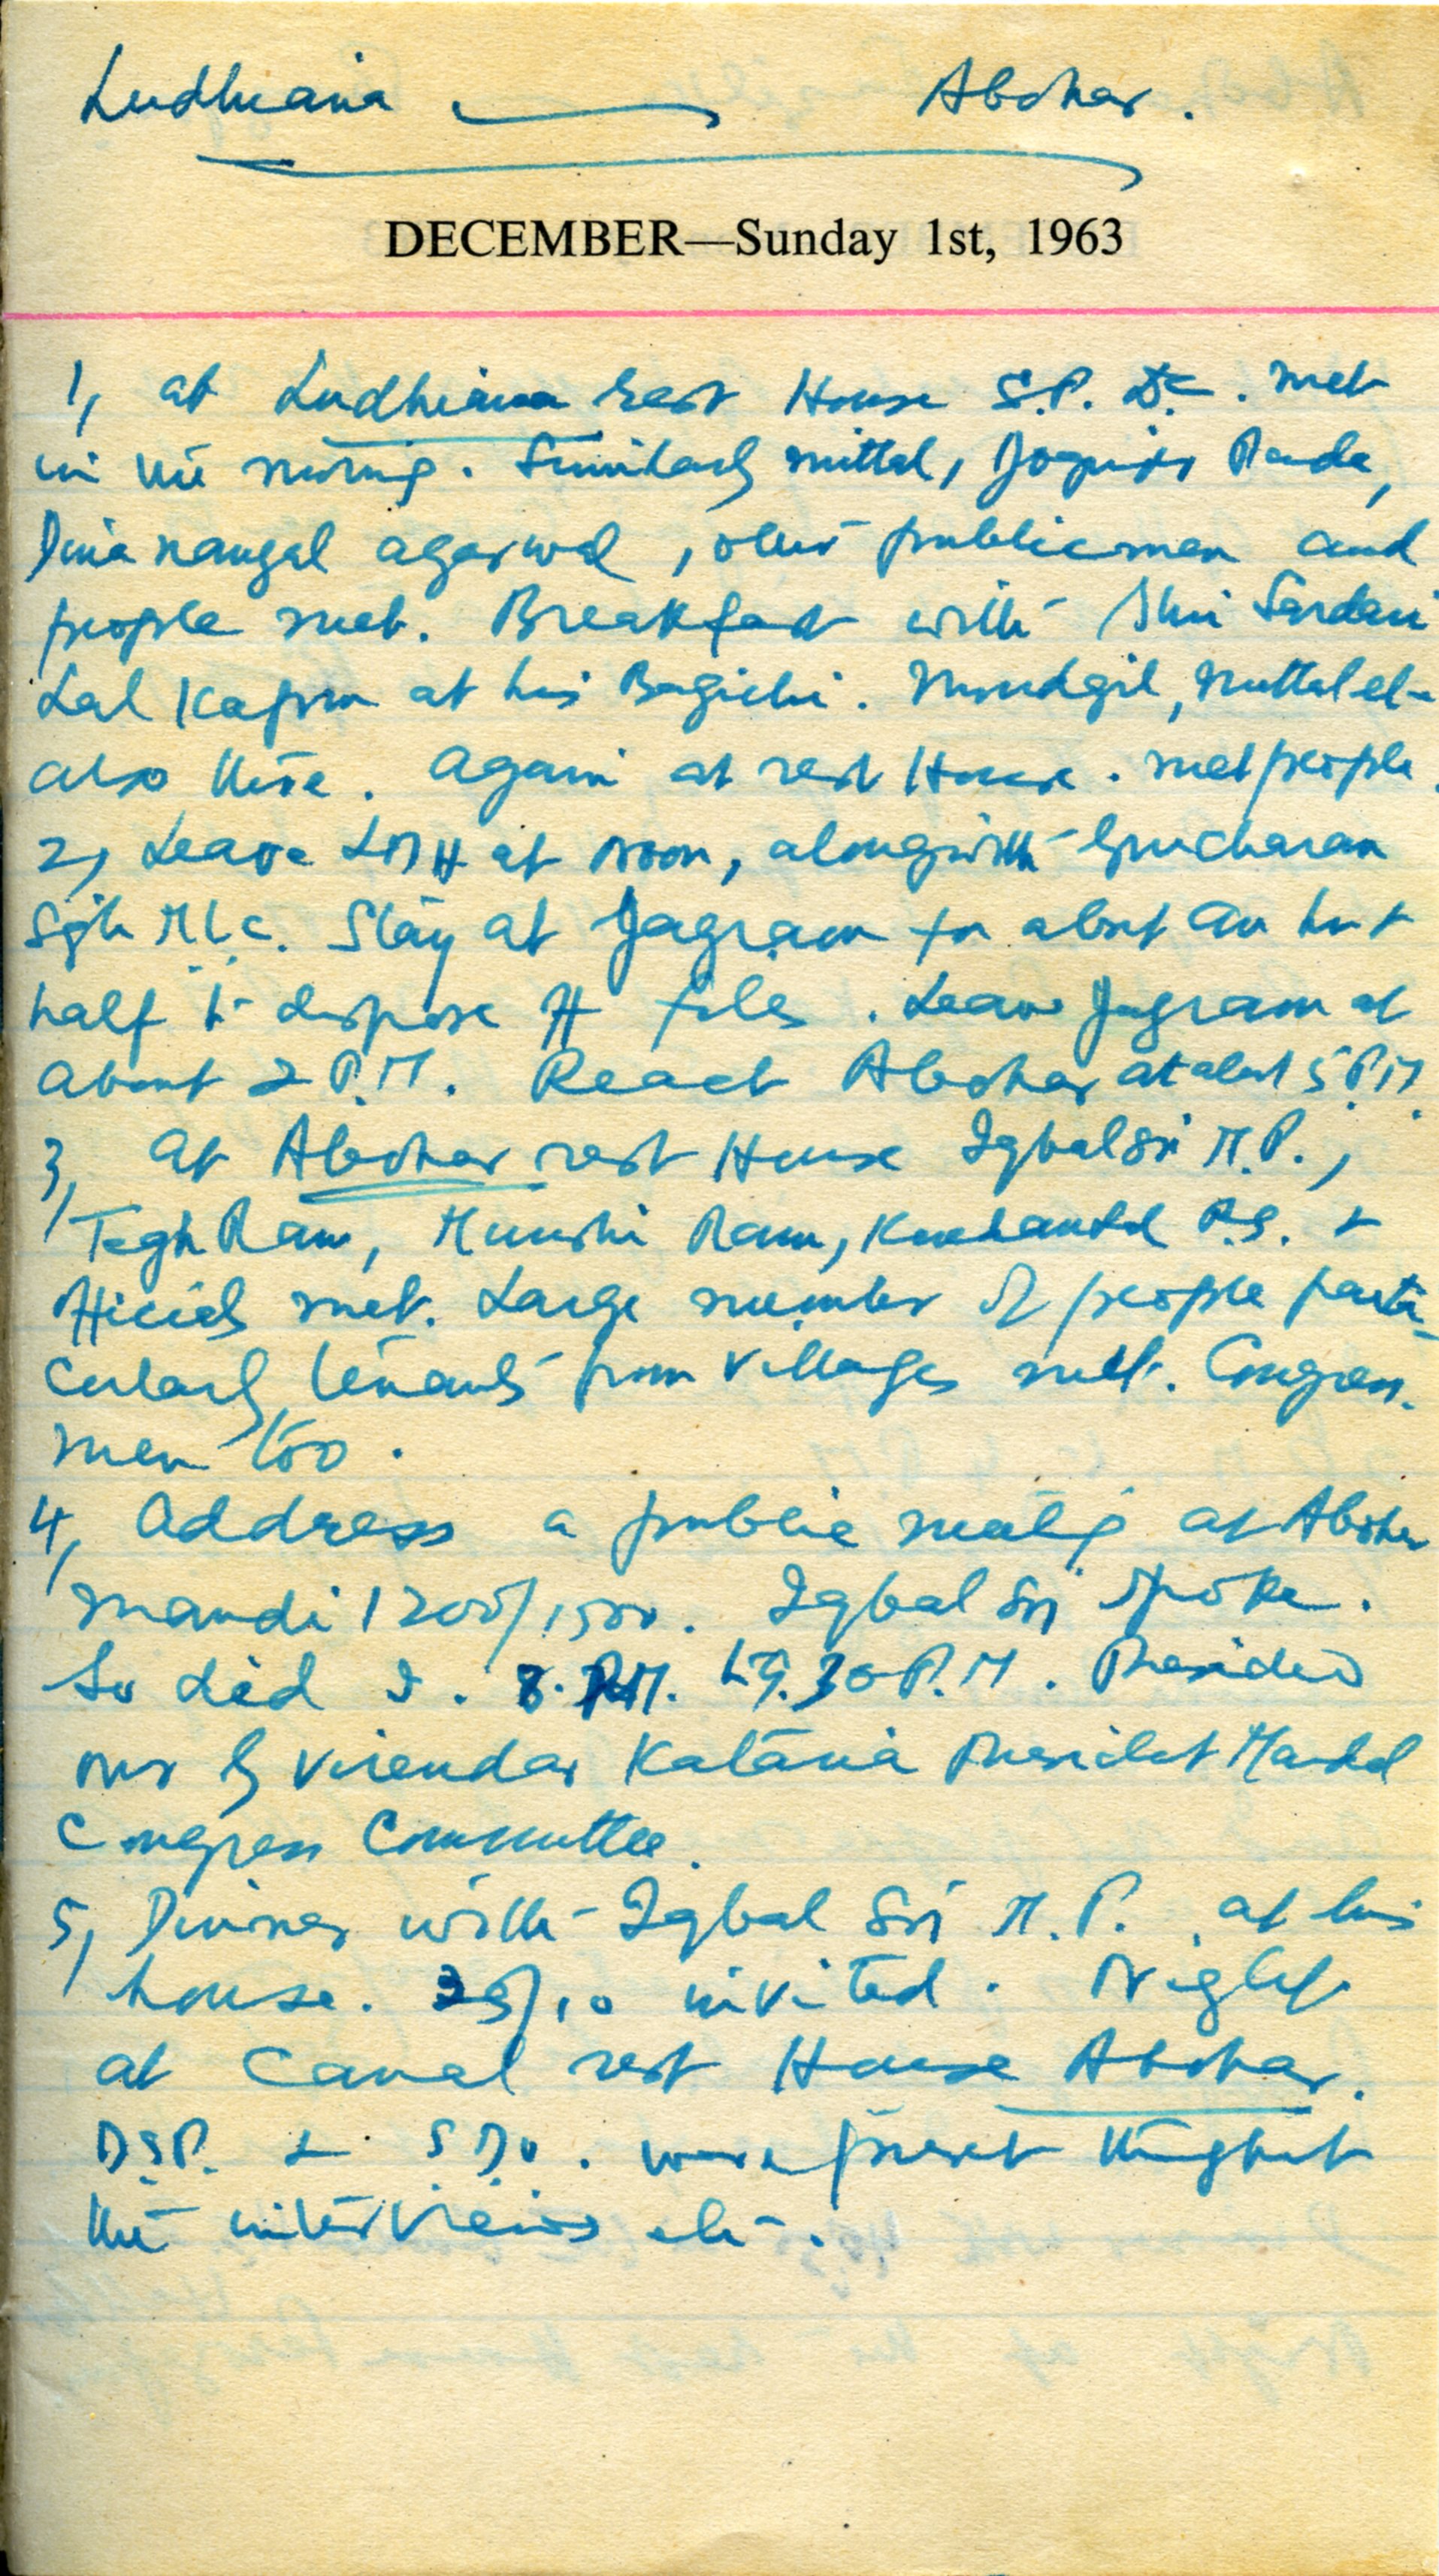 Ludhiana Abohar.
DECEMBER—Sunday 1st, 1963
1, at Ludhiana rest House S.P. D.C. met
in the morning. Similarly mittal, Joginder
Dina nangal agarwal, other public men and
people met. Breakfast with Shri Sardari
Lal Kapoor at his Bagichi. Moudgil, Mittal etc
also there. Again at rest House. met people.
2, Leave LDH at noon, alongwith Gurcharan
Sgh MLC. Stay at Jagraon for about an hr +
half to dispose off files. Leave Jagraon at
about 2 P.M. Reach Abohar at abut 5 P.M.
3, At Abohar rest House Iqbal M.P.,
Tegh Ram, Munshi Ram, P.S. +
officials met. Large number of people parti-
cularly tenants from villages met. Congress-
men too.
4, Address a public meetig at Abohar
mandi 1200/1500. Iqbal Sgh spoke.
So did I. 8. P.M. to 9.30 P.M. Presided
over by Virendar Kataria President Mandal
Congress Committee.
5, Dinner with Iqbal Sgh M.P. at his
house. invited. Night
at Canal rest House Abohar.
D.S.P. + S.D.O. were present throughout
the interviews etc.